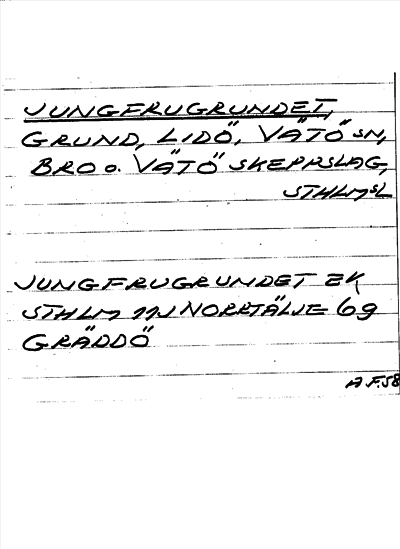 JUNGFRUGRUNDET,
GRUND, LIDÖ, VÄTÖ SN,
BRO O. VÄTÖ SKEPPSLAG,
STHLMSL
JUNGFRUGRUNDET EK
STHLM 11J NORRTÄLJE 69
GRÄDDÖ
A.F.58